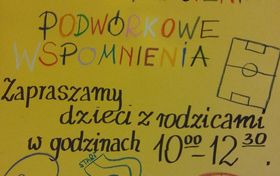 PODWÓRKOWE
WSPOMNIENIA
Zapraszamy
dzieci z rodzicami
w godzinach 10⁰⁰-12³⁰.
START